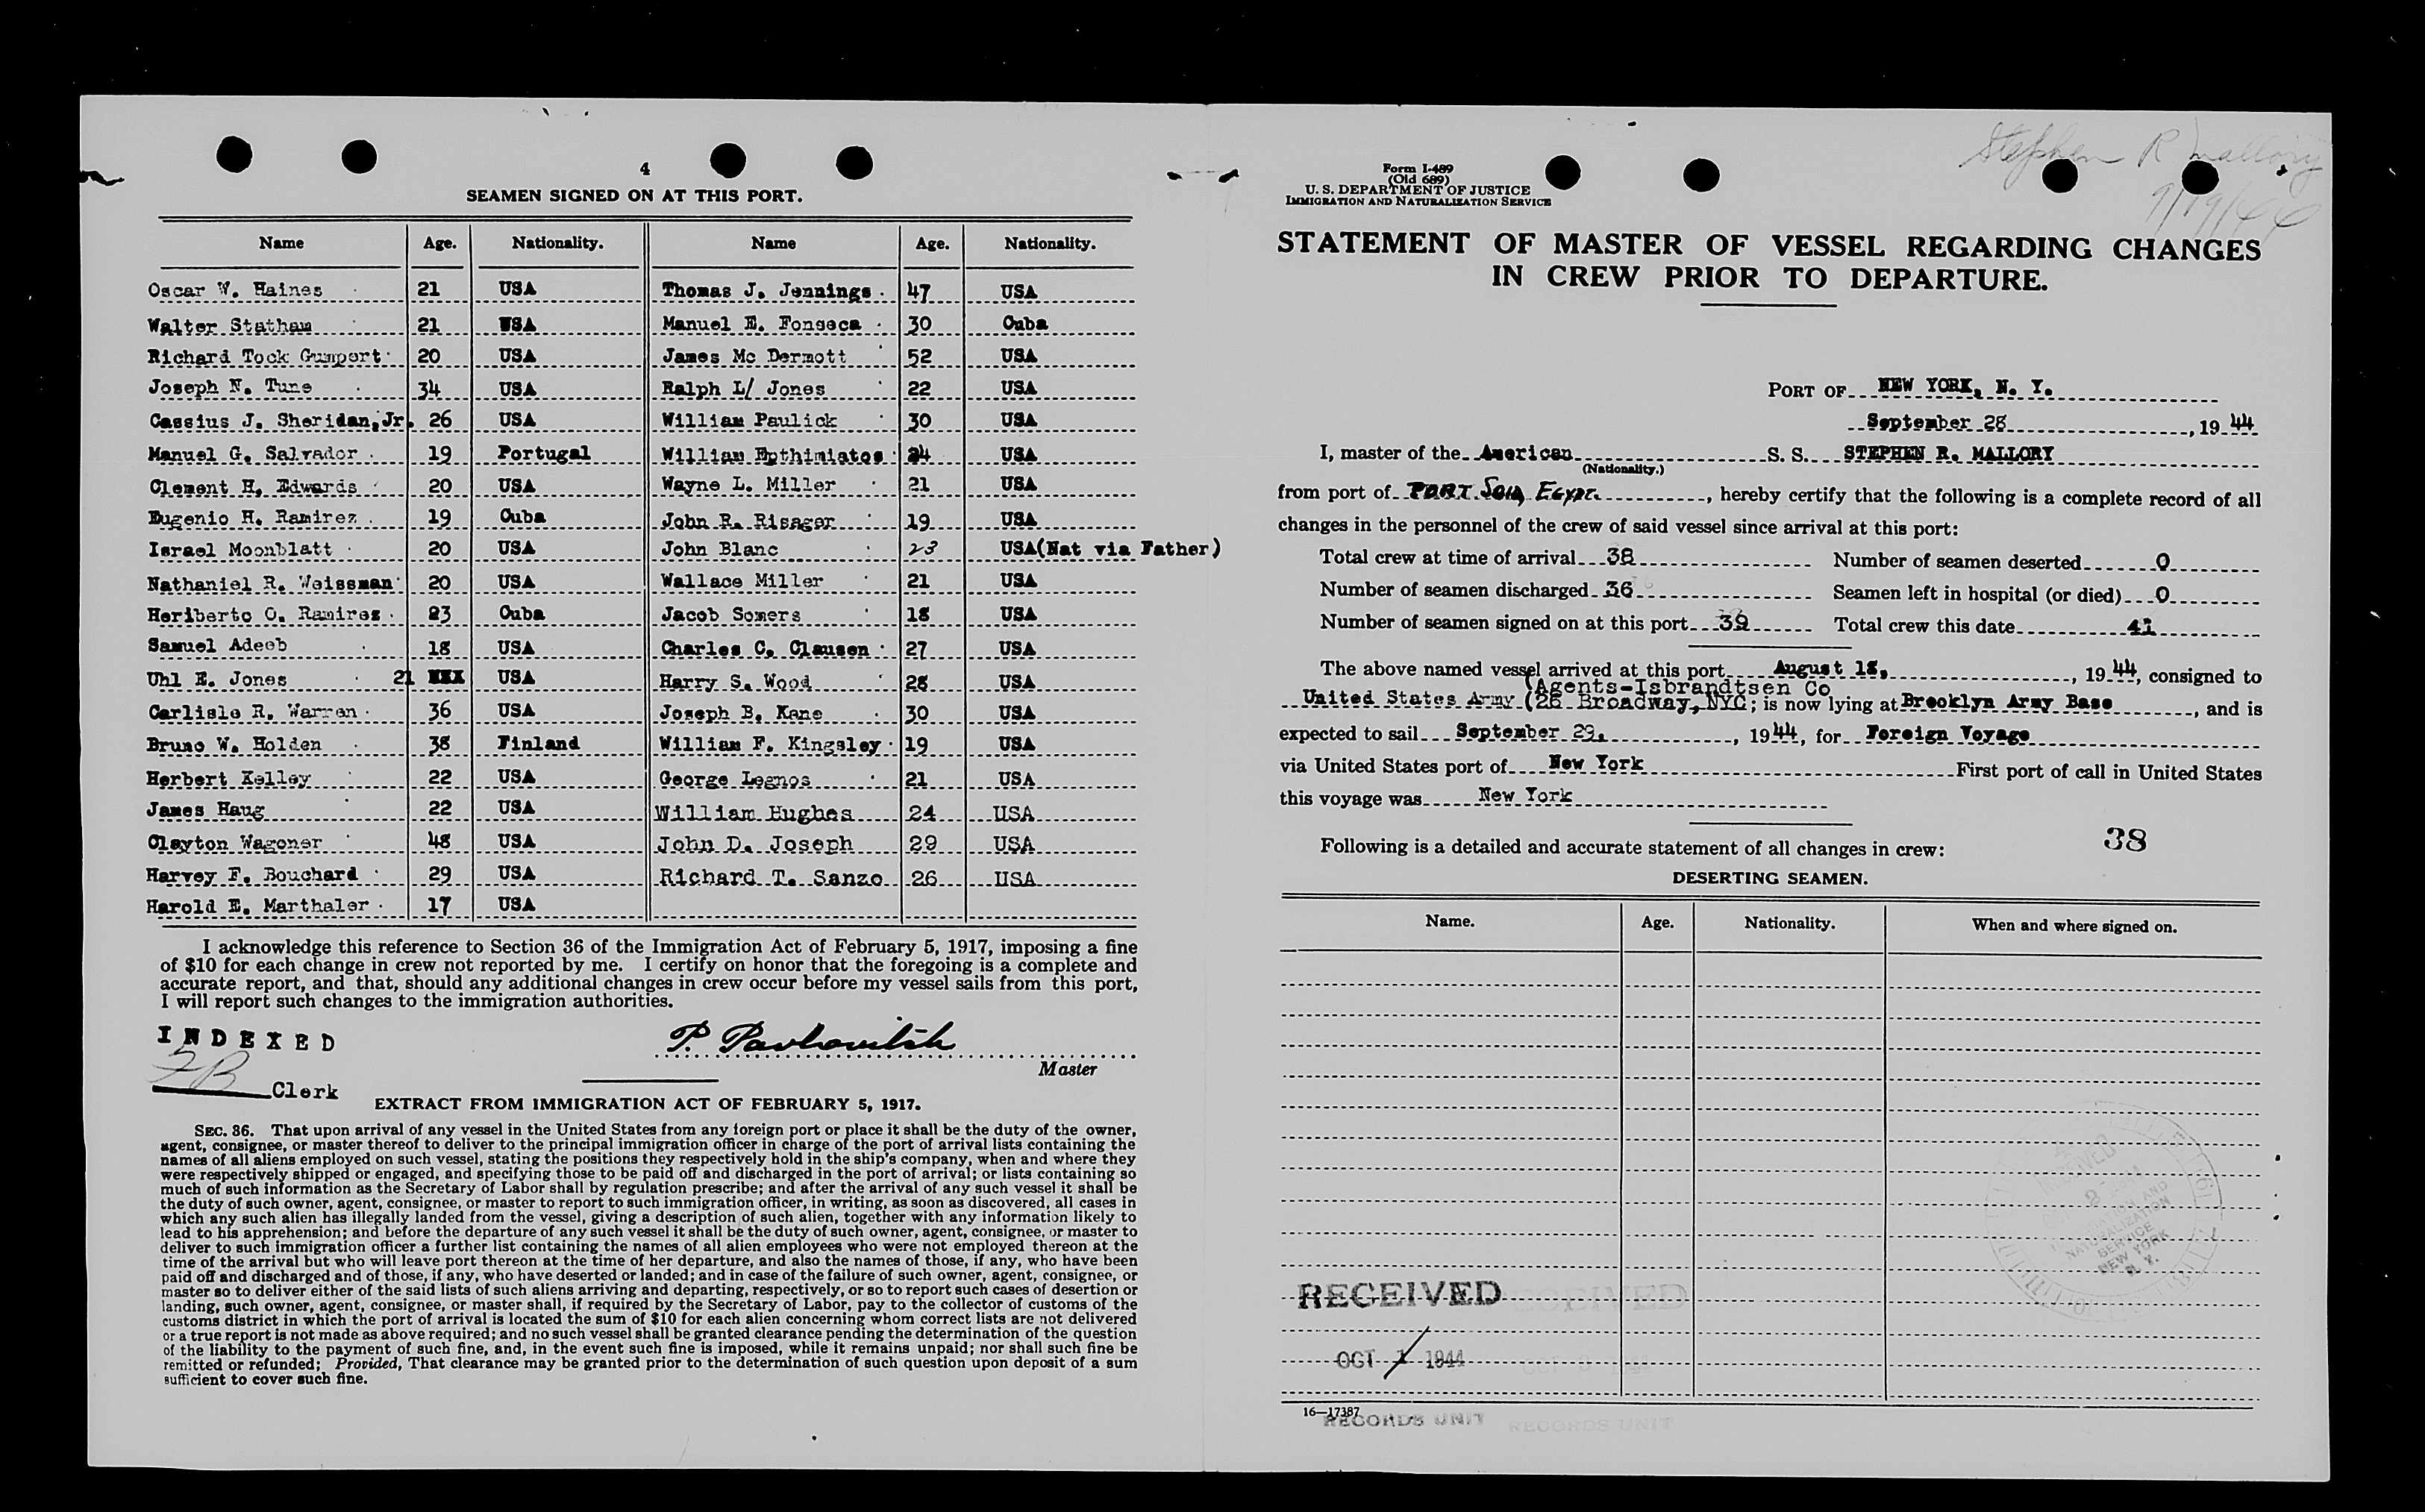 4
SEAMEN SIGNED ON AT THIS PORT.
Name Age. Nationality. Name Age. Nationality.
Oscar W. Haines 21 USA Thomas J. Jennings 47 USA
Walter Statham 21 USA Manuel E. Fonseca 30 Cuba
Richard Tock Gumpert 20 USA James Mc Dermott 52 USA
Joseph N. Tune 34 USA Ralph L/ Jones 22 USA
Cassius J. Sheridan,Jr. 26 USA William Paulick 30 USA
Manuel G. Salvador 19 Portugal William Epthimiatos 24 USA
Clement H. Edwards 20 USA Wayne L. Miller 21 USA
Eugenio H. Ramirez 19 Cuba John R. Risager 19 USA
Israel Moonblatt 20 USA John Blanc 23 USA(Nat via Father)
Nathaniel R. Weissman 20 USA Wallace Miller 21 USA
Heriberto O. Ramirez 23 Cuba Jacob Somers 18 USA
Samuel Adeeb 18 USA Charles C. Clausen 27 USA
Uhl E. Jones 21 XXX USA Harry S. Wood 28 USA
Carlisle R. Warren 36 USA Joseph B. Kane 30 USA
Bruno W. Holden 38 Finland William F. Kingsley 19 USA
Herbert Kelley 22 USA George Legnos 21 USA
James Haug 22 USA William Hughes 24 USA
Clayton Wagoner 48 USA John D. Joseph 29 USA
Harvey F. Bouchard 29 USA Richard T. Sanzo 26 USA
Harold E. Marthaler 17 USA
I acknowledge this reference to Section 36 of the Immigration Act of February 5, 1917, imposing a fine
of $10 for each change in crew not reported by me. I certify on honor that the foregoing is a complete and
accurate report, and that, should any additional changes in crew occur before my vessel sails from this port,
I will report such changes to the immigration authorities.
INDEXED
P. Pavkovitch
Master
FB Clerk
EXTRACT FROM IMMIGRATION ACT OF FEBRUARY 5, 1917.
SEC. 36. That upon arrival of any vessel in the United States from any foreign port or place it shall be the duty of the owner,
agent, consignee, or master thereof to deliver to the principal immigration officer in charge of the port of arrival lists containing the
names of all aliens employed on such vessel, stating the positions they respectively hold in the ship's company, when and where they
were respectively shipped or engaged, and specifying those to be paid off and discharged in the port of arrival; or lists containing so
much of such information as the Secretary of Labor shall by regulation prescribe; and after the arrival of any such vessel it shall be
the duty of such owner, agent, consignee, or master to report to such immigration officer, in writing, as soon as discovered, all cases in
which any such alien has illegally landed from the vessel, giving a description of such alien, together with any information likely to
lead to his apprehension; and before the departure of any such vessel it shall be the duty of such owner, agent, consignee, or master to
deliver to such immigration officer a further list containing the names of all alien employees who were not employed thereon at the
time of the arrival but who will leave port thereon at the time of her departure, and also the names of those, if any, who have been
paid off and discharged and of those, if any, who have deserted or landed; and in case of the failure of such owner, agent, consignee, or
master so to deliver either of the said lists of such aliens arriving and departing, respectively, or so to report such cases of desertion or
landing, such owner, agent, consignee, or master shall, if required by the Secretary of Labor, pay to the collector of customs of the
customs district in which the port of arrival is located the sum of $10 for each alien concerning whom correct lists are not delivered
or a true report is not made as above required; and no such vessel shall be granted clearance pending the determination of the question
of the liability to the payment of such fine, and, in the event such fine is imposed, while it remains unpaid; nor shall such fine be
remitted or refunded; Provided, That clearance may be granted prior to the determination of such question upon deposit of a sum
sufficient to cover such fine.
Stephen R Mallory
9/19/44
Form I-489
(Old 689)
U. S. DEPARTMENT OF JUSTICE
IMMIGRATION AND NATURALIZATION SERVICE
STATEMENT OF MASTER OF VESSEL REGARDING CHANGES
IN CREW PRIOR TO DEPARTURE.
PORT OF NEW YORK, N. Y.
September 28, 1944
I, master of the American S. S. STEPHEN R. MALLORY
(Nationality.)
from port of PORT SAID, EGYPT, hereby certify that the following is a complete record of all
changes in the personnel of the crew of said vessel since arrival at this port:
Total crew at time of arrival 38 Number of seamen deserted 0
Number of seamen discharged 36 Seamen left in hospital (or died) 0
Number of seamen signed on at this port 39 Total crew this date 41
The above named vessel arrived at this port August 18, 1944, consigned to
(Agents-Isbrandtsen Co
United States Army (26 Broadway, NYC; is now lying at Brooklyn Army Base, and is
expected to sail September 29, 1944, for Foreign Voyage
via United States port of New York First port of call in United States
this voyage was New York
38
Following is a detailed and accurate statement of all changes in crew:
DESERTING SEAMEN.
Name. Age. Nationality. When and where signed on.
NATURALIZATION
SERVICE
NEW YORK
N. Y.
RECEIVED
OCT 1 1944
16—17387
RECORDS UNIT RECORDS UNIT